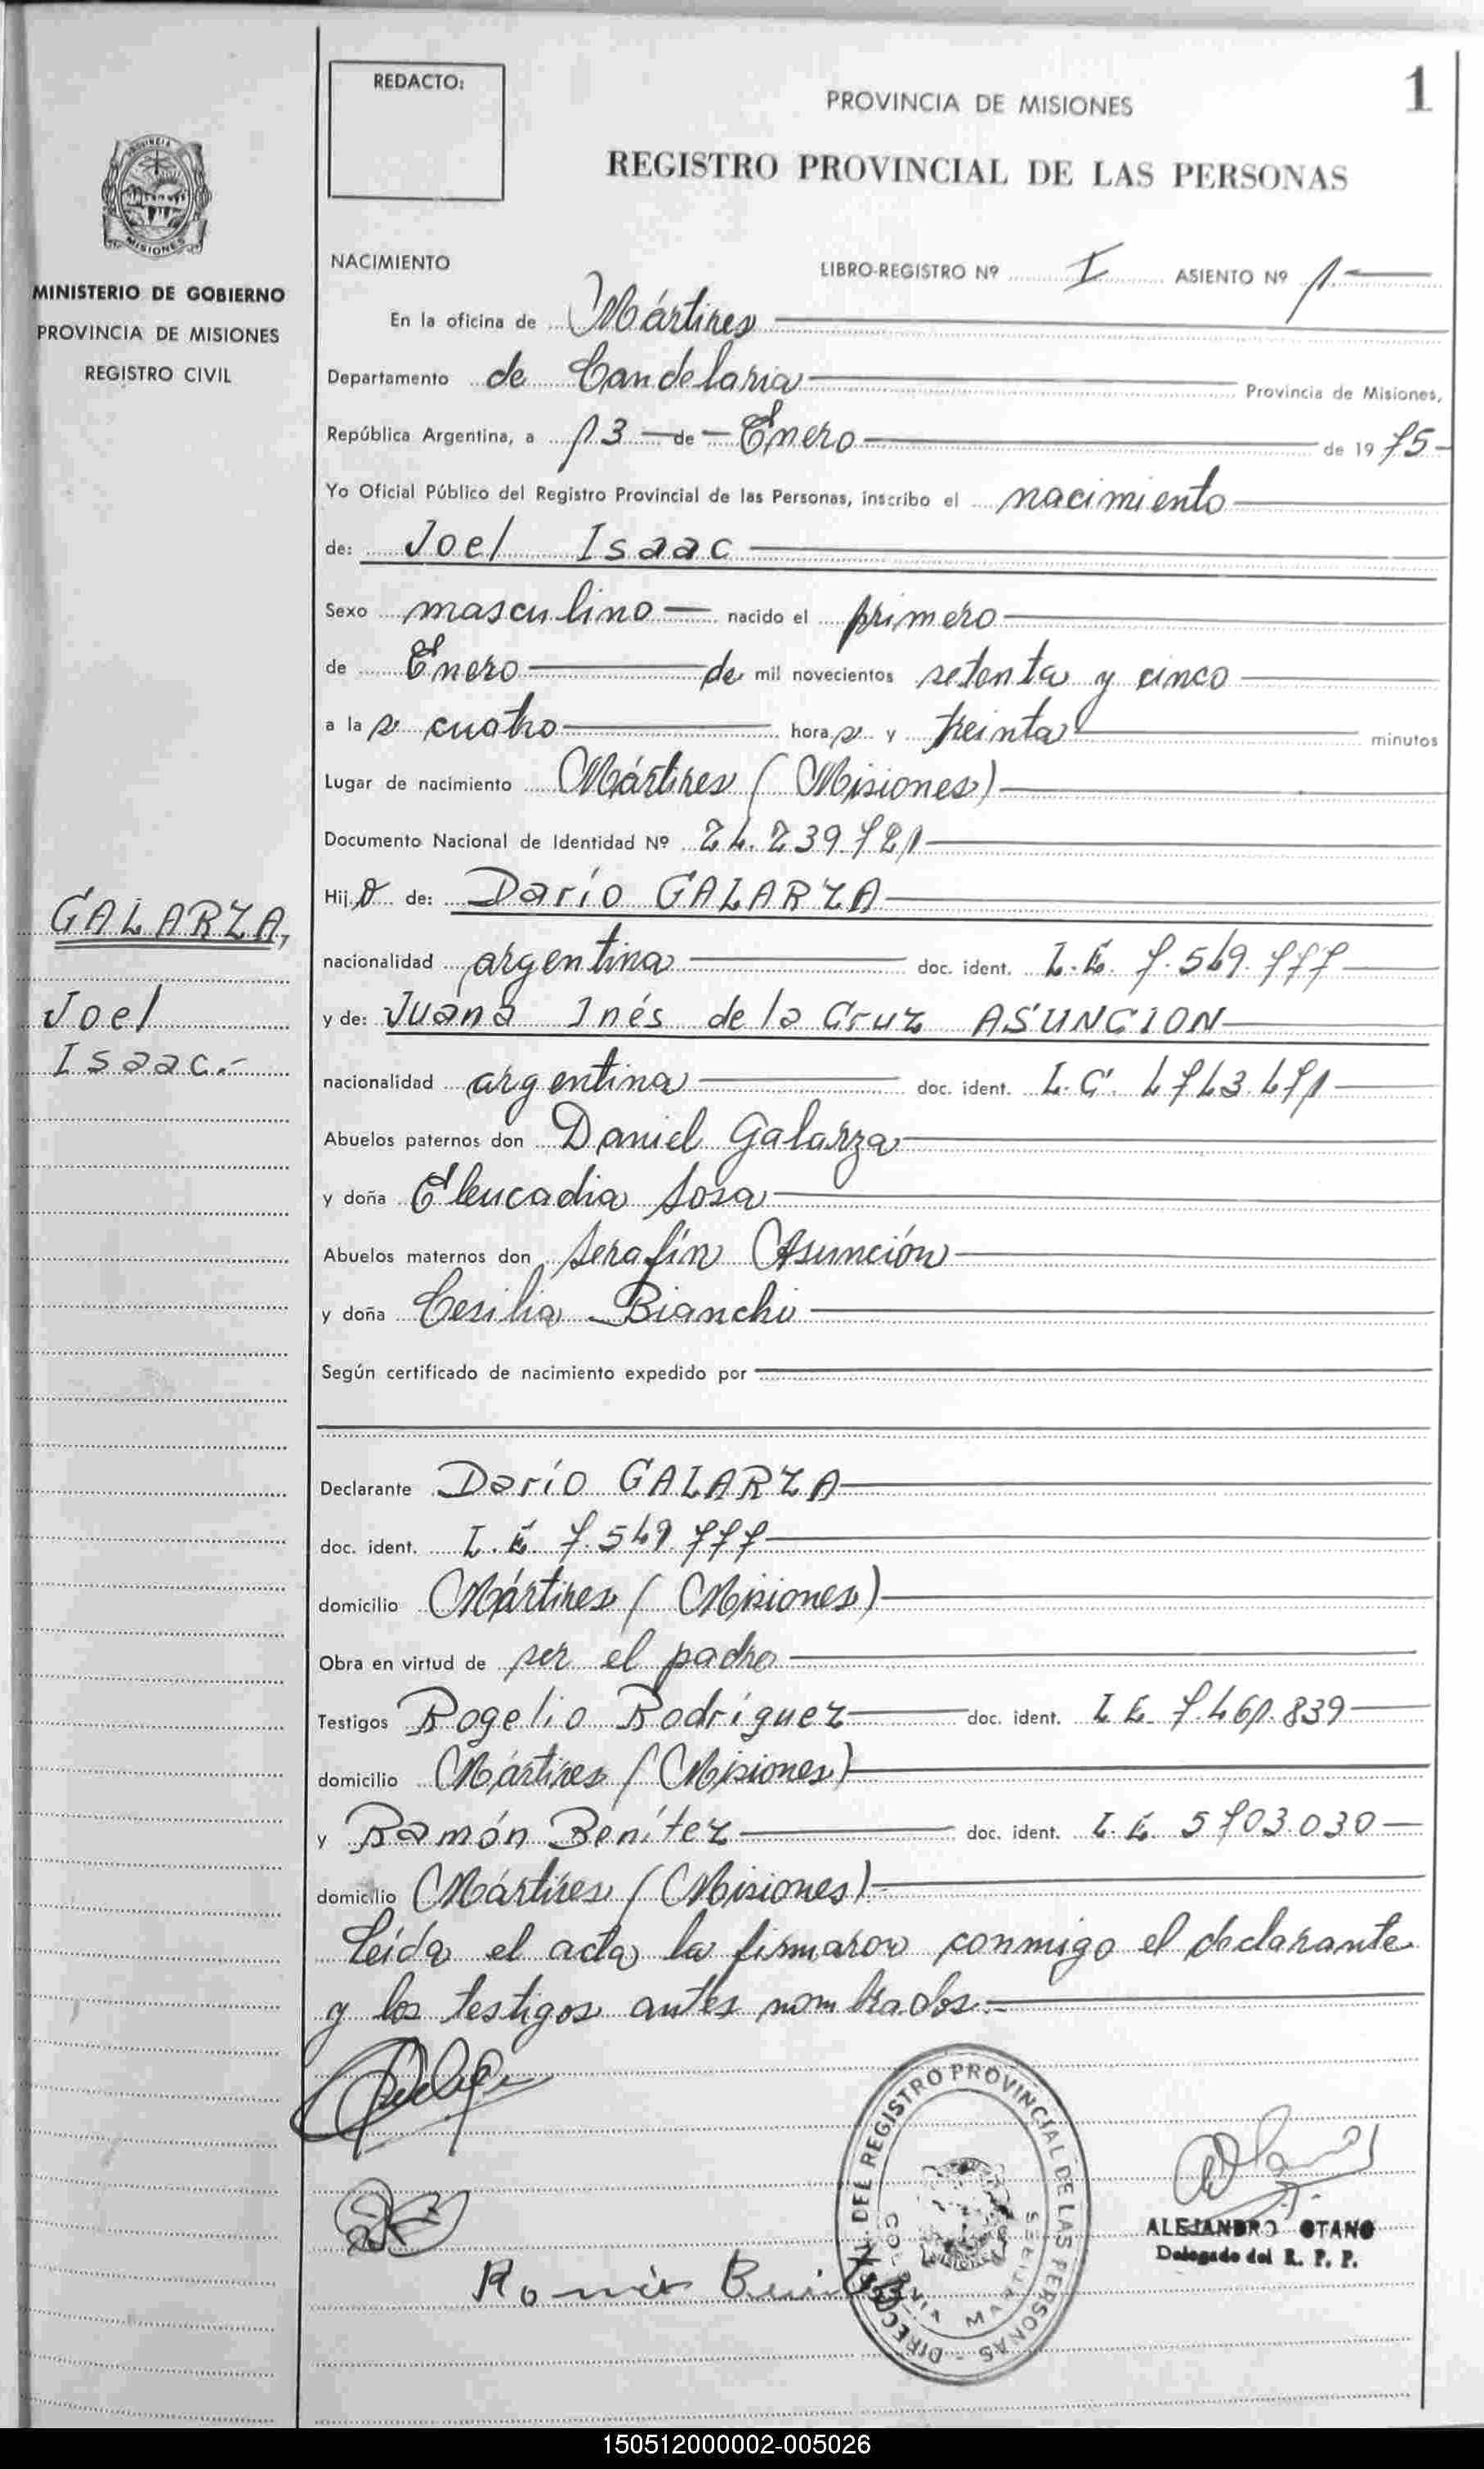 REDACTO:
1
PROVINCIA DE MISIONES
REGISTRO PROVINCIAL DE LAS PERSONAS
PROVINCIA
MISIONES
MINISTERIO DE GOBIERNO
PROVINCIA DE MISIONES
REGISTRO CIVIL
NACIMIENTO
LIBRO-REGISTRO Nº I ASIENTO Nº 1
En la oficina de Mártires
Departamento de Candelaria Provincia de Misiones,
República Argentina, a 13 de Enero de 1975
Yo Oficial Público del Registro Provincial de las Personas, inscribo el nacimiento
de: Joel Isaac
Sexo masculino nacido el primero
de Enero de mil novecientos setenta y cinco
a las cuatro horas y treinta minutos
Lugar de nacimiento Mártires (Misiones)
Documento Nacional de Identidad Nº 24.239.721
Hijo de: Darío GALARZA
nacionalidad argentina doc. ident. L.E. 7.549.777
y de: Juana Inés de la Cruz ASUNCION
nacionalidad argentina doc. ident. L.C. 4743.471
Abuelos paternos don Daniel Galarza
y doña Eleucadia Sosa
Abuelos maternos don Serafín Asunción
y doña Cesilia Bianchi
Según certificado de nacimiento expedido por
GALARZA,
Joel
Isaac.-
Declarante Darío GALARZA
doc. ident. L.E. 7.549.777
domicilio Mártires (Misiones)
Obra en virtud de ser el padre
Testigos Rogelio Rodríguez doc. ident. L.E. 7.461.839
domicilio Mártires (Misiones)
y Ramón Benítez doc. ident. L.E. 5703.030
domicilio Mártires (Misiones)
Leída el acta la firmaron conmigo el declarante
y los testigos antes nombrados.-
DIRECCION DEL REGISTRO PROVINCIAL DE LAS PERSONAS
COLONIA MARTIRES
MISIONES
ALEJANDRO OTANO
Delegado del R. P. P.
150512000002-005026